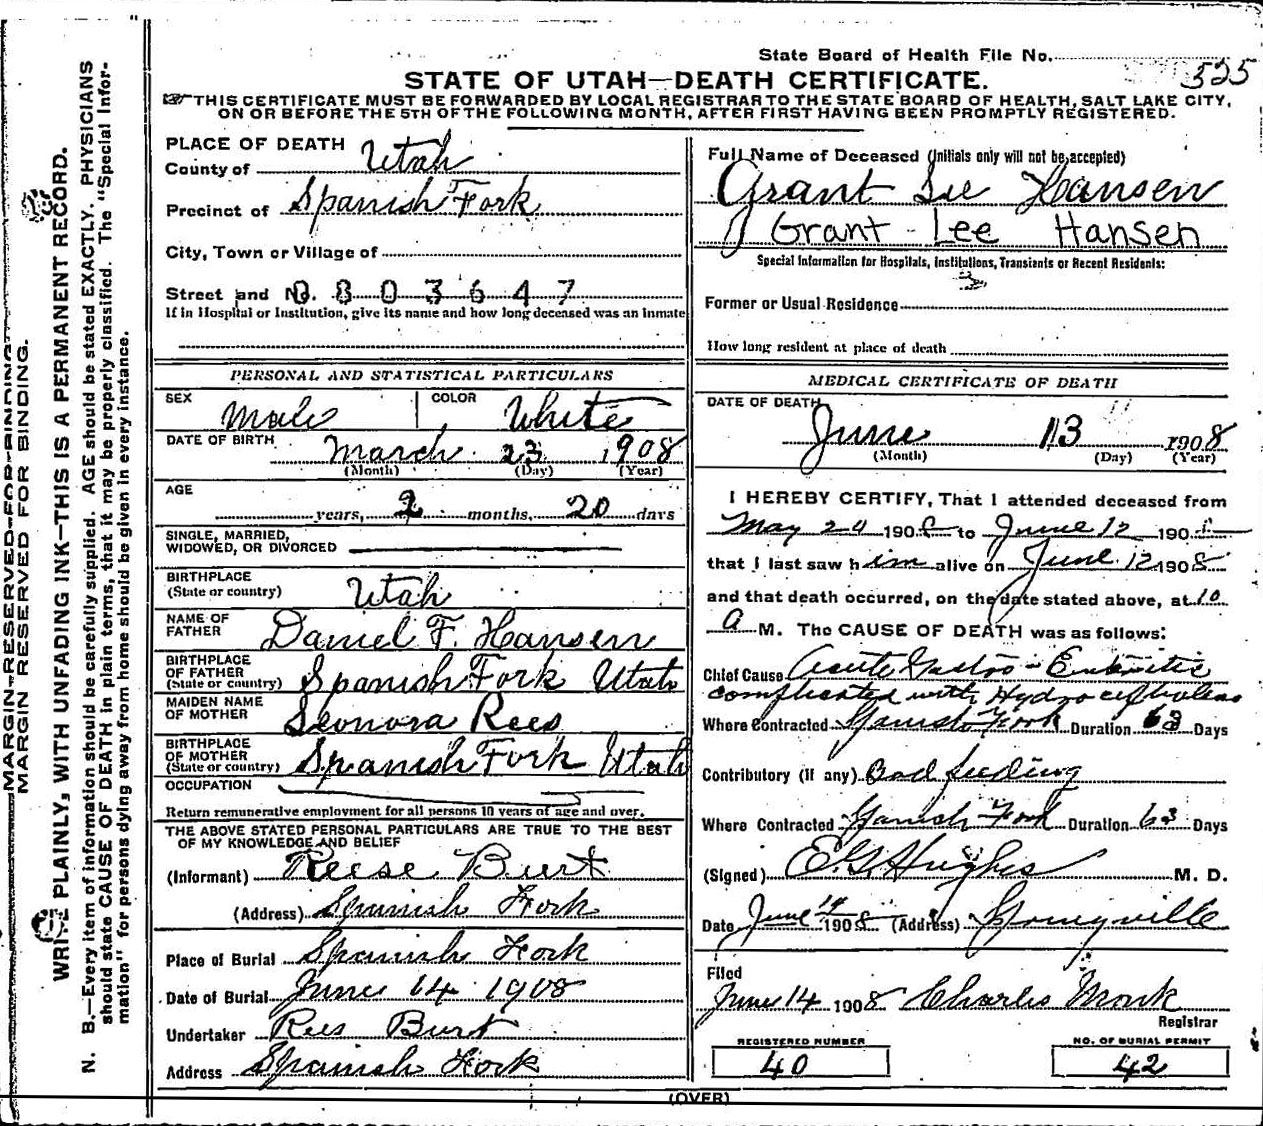 State Board of Health File No. 525
STATE OF UTAH—DEATH CERTIFICATE.
THIS CERTIFICATE MUST BE FORWARDED BY LOCAL REGISTRAR TO THE STATE BOARD OF HEALTH, SALT LAKE CITY,
ON OR BEFORE THE 5TH OF THE FOLLOWING MONTH, AFTER FIRST HAVING BEEN PROMPTLY REGISTERED.
MARGIN RESERVED FOR BINDING
MARGIN RESERVED FOR BINDING.
WRITE PLAINLY, WITH UNFADING INK—THIS IS A PERMANENT RECORD.
N. B.—Every item of information should be carefully supplied. AGE should be stated EXACTLY. PHYSICIANS
should state CAUSE OF DEATH in plain terms, that it may be properly classified. The "Special Infor-
mation" for persons dying away from home should be given in every instance.
PLACE OF DEATH
County of Utah
Precinct of Spanish Fork
City, Town or Village of
Street and No. 0803647
If in Hospital or Institution, give its name and how long deceased was an inmate
PERSONAL AND STATISTICAL PARTICULARS
SEX Male COLOR White
DATE OF BIRTH March 23 1908
(Month) (Day) (Year)
AGE
years, 2 months, 20 days
SINGLE, MARRIED,
WIDOWED, OR DIVORCED
BIRTHPLACE
(State or country) Utah
NAME OF
FATHER Daniel F. Hansen
BIRTHPLACE
OF FATHER
(State or country) Spanish Fork Utah
MAIDEN NAME
OF MOTHER Leonora Rees
BIRTHPLACE
OF MOTHER
(State or country) Spanish Fork Utah
OCCUPATION
Return remunerative employment for all persons 10 years of age and over.
THE ABOVE STATED PERSONAL PARTICULARS ARE TRUE TO THE BEST
OF MY KNOWLEDGE AND BELIEF
(Informant) Reese Burt
(Address) Spanish Fork
Place of Burial Spanish Fork
Date of Burial June 14 1908
Undertaker Rees Burt
Address Spanish Fork
Full Name of Deceased (Initials only will not be accepted)
Grant Lee Hansen
Grant Lee Hansen
Special Information for Hospitals, Institutions, Transients or Recent Residents:
Former or Usual Residence
How long resident at place of death
MEDICAL CERTIFICATE OF DEATH
DATE OF DEATH
June 13 1908
(Month) (Day) (Year)
I HEREBY CERTIFY, That I attended deceased from
May 24 1908 to June 12 190
that I last saw him alive on June 12 1908
and that death occurred, on the date stated above, at 10
A M. The CAUSE OF DEATH was as follows:
Chief Cause Acute Gastro-Enteritis
complicated with Hydrocephalus
Where Contracted Spanish Fork Duration 63 Days
Contributory (if any) Bad feeding
Where Contracted Spanish Fork Duration 63 Days
(Signed) E. G. Hughes M. D.
Date June 14 1908 (Address) Springville
Filed
June 14 1908 Charles Monk
Registrar
REGISTERED NUMBER NO. OF BURIAL PERMIT
40 42
(OVER)